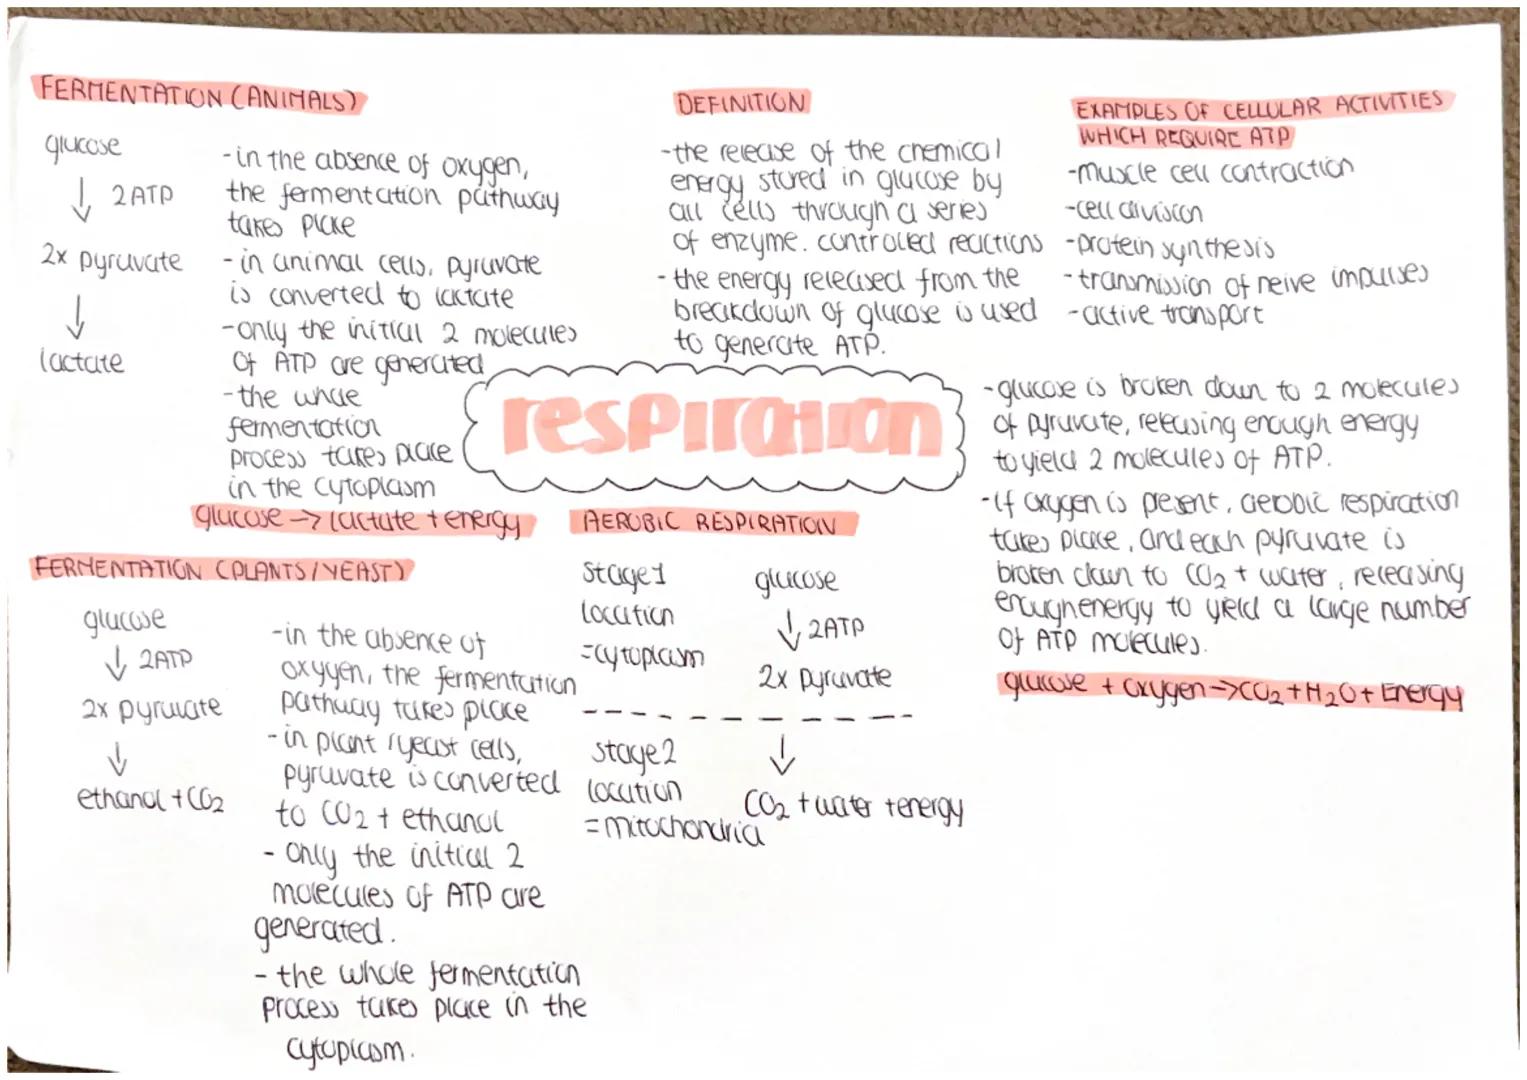 FERMENTATION (ANIMALS)
glucose
↓ 2ATP
2x pyruvate
↓
lactate
-in the absence of oxygen,
the fermentation pathway
takes place
-in animal cells, pyruvate
is converted to lactate
-only the initial 2 molecules
of ATP are generated
-the whole
fermentation
process takes place
in the cytoplasm
glucose → lactate + energy
FERMENTATION (PLANTS/YEAST)
glucose
↓ 2ATP
2x pyruvate
↓
ethanol + CO2
-in the absence of
oxygen, the fermentation
pathway takes place
-in plant/yeast cells,
pyruvate is converted
to CO2 + ethanol
- Only the initial 2
molecules of ATP are
generated.
- the whole fermentation
process takes place in the
cytoplasm.
DEFINITION
-the release of the chemical
energy stored in glucose by
all cells through a series
of enzyme. controlled reactions
-the energy released from the
breakdown of glucose is used
to generate ATP.
respiration
AEROBIC RESPIRATION
stage 1
location
=cytoplasm
glucose
↓ 2ATP
2x pyruvate
stage 2
location
=mitochondria
↓
CO2 + water + energy
EXAMPLES OF CELLULAR ACTIVITIES
WHICH REQUIRE ATP
-muscle cell contraction
-cell division
-protein synthesis
-transmission of nerve impulses
-active transport
-glucose is broken down to 2 molecules
of pyruvate, releasing enough energy
to yield 2 molecules of ATP.
-if oxygen is present, aerobic respiration
takes place, and each pyruvate is
broken down to CO2 + water, releasing
enough energy to yield a large number
of ATP molecules.
glucose + oxygen → CO2 + H2O + Energy